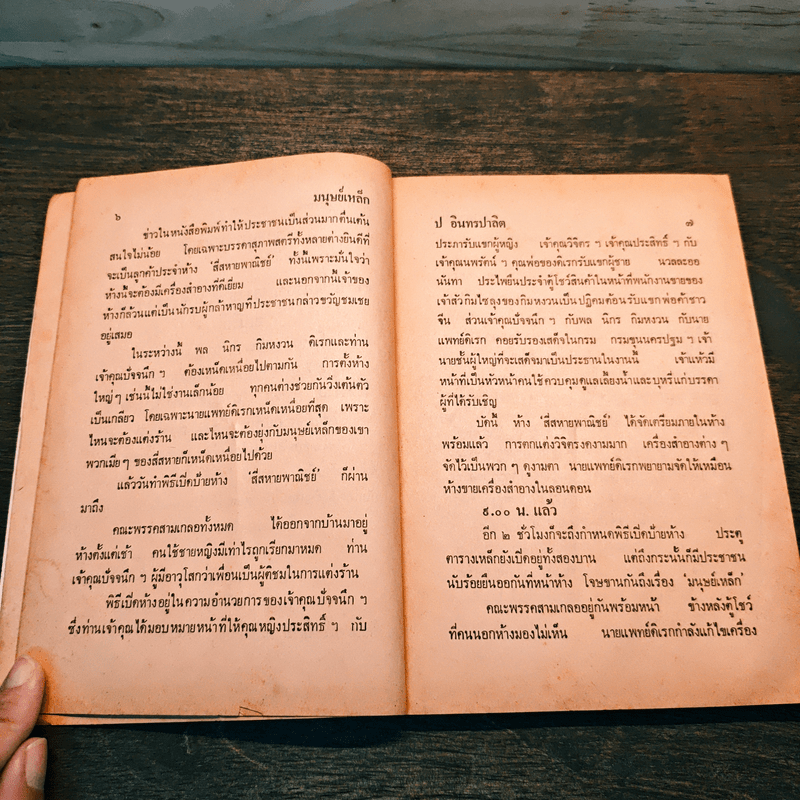 ๖
มนุษย์เหล็ก
ข่าวในหนังสือพิมพ์ทำให้ประชาชนเป็นส่วนมากตื่นเต้น
สนใจไม่น้อย โดยเฉพาะบรรดาสุภาพสตรีทั้งหลายต่างยินดีที่
จะเป็นลูกค้าประจำห้าง ‘สี่สหายพาณิชย์’ ทั้งนี้เพราะมั่นใจว่า
ห้างนี้จะต้องมีเครื่องสำอางที่ดีเยี่ยม และนอกจากนี้เจ้าของ
ห้างก็ล้วนแต่เป็นนักรบผู้กล้าหาญที่ประชาชนกล่าวขวัญชมเชย
อยู่เสมอ
ในระหว่างนี้ พล นิกร กิมหงวน ดิเรกและท่าน
เจ้าคุณปัจจนึก ฯ ต้องเหน็ดเหนื่อยไปตามกัน การตั้งห้าง
ใหญ่ๆ เช่นนี้ไม่ใช่งานเล็กน้อย ทุกคนต่างช่วยกันวิ่งเต้นตัว
เป็นเกลียว โดยเฉพาะนายแพทย์ดิเรกเหน็ดเหนื่อยที่สุด เพราะ
ไหนจะต้องแต่งร้าน และไหนจะต้องยุ่งกับมนุษย์เหล็กของเขา
พวกเมียๆ ของสี่สหายก็เหน็ดเหนื่อยไปด้วย
แล้ววันทำพิธีเปิดป้ายห้าง ‘สี่สหายพาณิชย์’ ก็ผ่าน
มาถึง
คณะพรรคสามเกลอทั้งหมด ได้ออกจากบ้านมาอยู่
ห้างตั้งแต่เช้า คนใช้ชายหญิงมีเท่าไรถูกเรียกมาหมด ท่าน
เจ้าคุณปัจจนึก ฯ ผู้มีอาวุโสกว่าเพื่อนเป็นผู้ติชมในการแต่งร้าน
พิธีเปิดห้างอยู่ในความอำนวยการของเจ้าคุณปัจจนึก ฯ
ซึ่งท่านเจ้าคุณได้มอบหมายหน้าที่ให้คุณหญิงประสิทธิ์ ฯ กับ
ป อินทรปาลิต
๗
ประภารับแขกผู้หญิง เจ้าคุณวิจิตร ฯ เจ้าคุณประสิทธิ์ ฯ กับ
เจ้าคุณนพรัตน์ ฯ คุณพ่อของดิเรกรับแขกผู้ชาย นวลละออ
นันทา ประไพยืนประจำตู้โชว์สินค้าในหน้าที่พนักงานขายของ
เจ้าสัวกิมไซลุงของกิมหงวนเป็นปฏิคมต้อนรับแขกพ่อค้าชาว
จีน ส่วนเจ้าคุณปัจจนึก ฯ กับพล นิกร กิมหงวน กับนาย
แพทย์ดิเรก คอยรับรองเสด็จในกรม กรมขุนนครปฐม ฯ เจ้า
นายชั้นผู้ใหญ่ที่จะเสด็จมาเป็นประธานในงานนี้ เจ้าแห้วมี
หน้าที่เป็นหัวหน้าคนใช้ควบคุมดูแลเลี้ยงน้ำและบุหรี่แก่บรรดา
ผู้ที่ได้รับเชิญ
บัดนี้ ห้าง ‘สี่สหายพาณิชย์’ ได้จัดเตรียมภายในห้าง
พร้อมแล้ว การตกแต่งวิจิตรงดงามมาก เครื่องสำอางต่าง ๆ
จัดไว้เป็นพวก ๆ ดูงามตา นายแพทย์ดิเรกพยายามจัดให้เหมือน
ห้างขายเครื่องสำอางในลอนดอน
๙.๐๐ น. แล้ว
อีก ๒ ชั่วโมงก็จะถึงกำหนดพิธีเปิดป้ายห้าง ประตู
ตารางเหล็กยังเปิดอยู่ทั้งสองบาน แต่ถึงกระนั้นก็มีประชาชน
นับร้อยยืนออกันที่หน้าห้าง โจษขานกันถึงเรื่อง ‘มนุษย์เหล็ก’
คณะพรรคสามเกลออยู่กันพร้อมหน้า ข้างหลังตู้โชว์
ที่คนนอกห้างมองไม่เห็น นายแพทย์ดิเรกกำลังแก้ไขเครื่อง